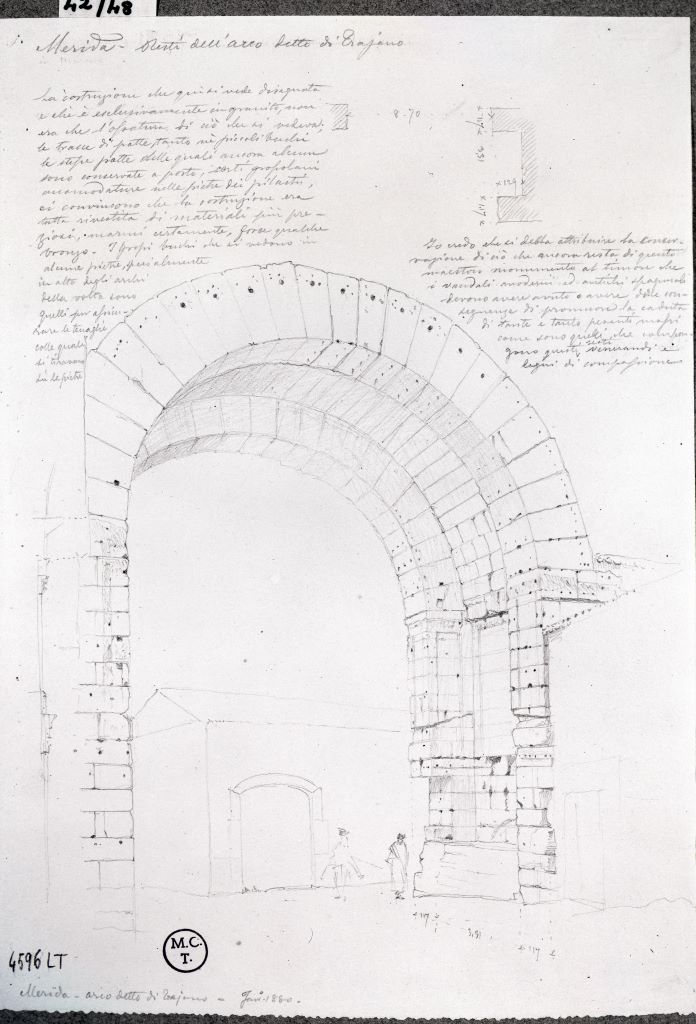 42/48
Merida - Resti dell'arco detto di Trajano
La costruzione che quì si vede disegnata
e che è esclusivamente in granito, non
era che l'ossatura di ciò che si vedeva;
le tracce di patte, tanto ne' piccoli buchi
le stesse patte delle quali ancora alcune
sono conservate a posto, certi grossolani
accomodature nelle pietre dei pilastri,
ci convincono che la costruzione era
tutta rivestita di materiali più pre-
ziosi, marmi certamente, forse qualche
bronzo. I grossi buchi che si vedono in
alcune pietre, specialmente
in alto degli archi
della volta sono
quelli per assicu-
rare le tenaglie
colle quali
si tiravano
sù le pietre
8-70
1,17
3,51
1,29
1,17
Io credo che si debba attribuire la conser-
vazione di ciò che ancora resta di questo
maestoso monumento al timore che
i vandali moderni ed antichi spagnuoli
devono avere avuto e avere delle con-
seguenze di promuovere la caduta
di tante e tanto pesanti massi
come sono quelli che compon-
gono questi resti venerandi e
degni di compassione
1,17
3,51
1,17
M.C.
T.
4596 LT
Merida - arco detto di Trajano - 1880.